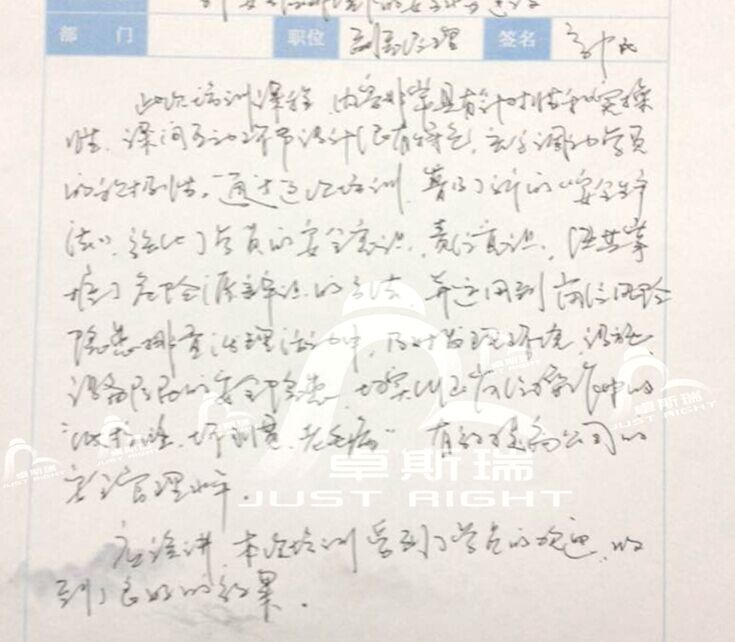 部 门 职位 副总经理 签名
此次培训课程，内容非常具有针对性和实操
性，课间互动环节设计很有特色，充分调动学员
的积极性。通过这次培训，普及了新的《安全生产
法》，强化了学员的安全意识、责任意识，使其掌
握了危险源辨识的方法，并运用到岗位风险
隐患排查治理活动中，及时发现环境、设施、
设备存在的安全隐患，切实纠正岗位操作中的
“低标准、坏习惯、老毛病”，有效提高公司的
安全管理水平。
应该讲，本次培训受到了学员的欢迎，收
到了良好的效果。
卓斯瑞
JUST RIGHT
卓斯瑞
JUST RIGHT
卓斯瑞
JUST RIGHT